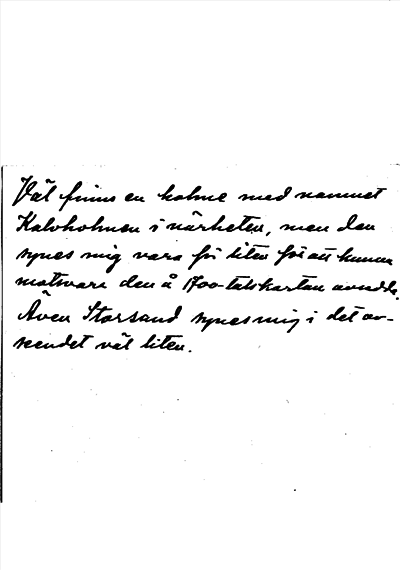 Väl finns en holme med namnet
Kalvholmen i närheten, men den
synes mig vara för liten för att kunna
motsvara den å 1700-talskartan avsedda.
Även Storsand synes mig i det av-
seendet väl liten.